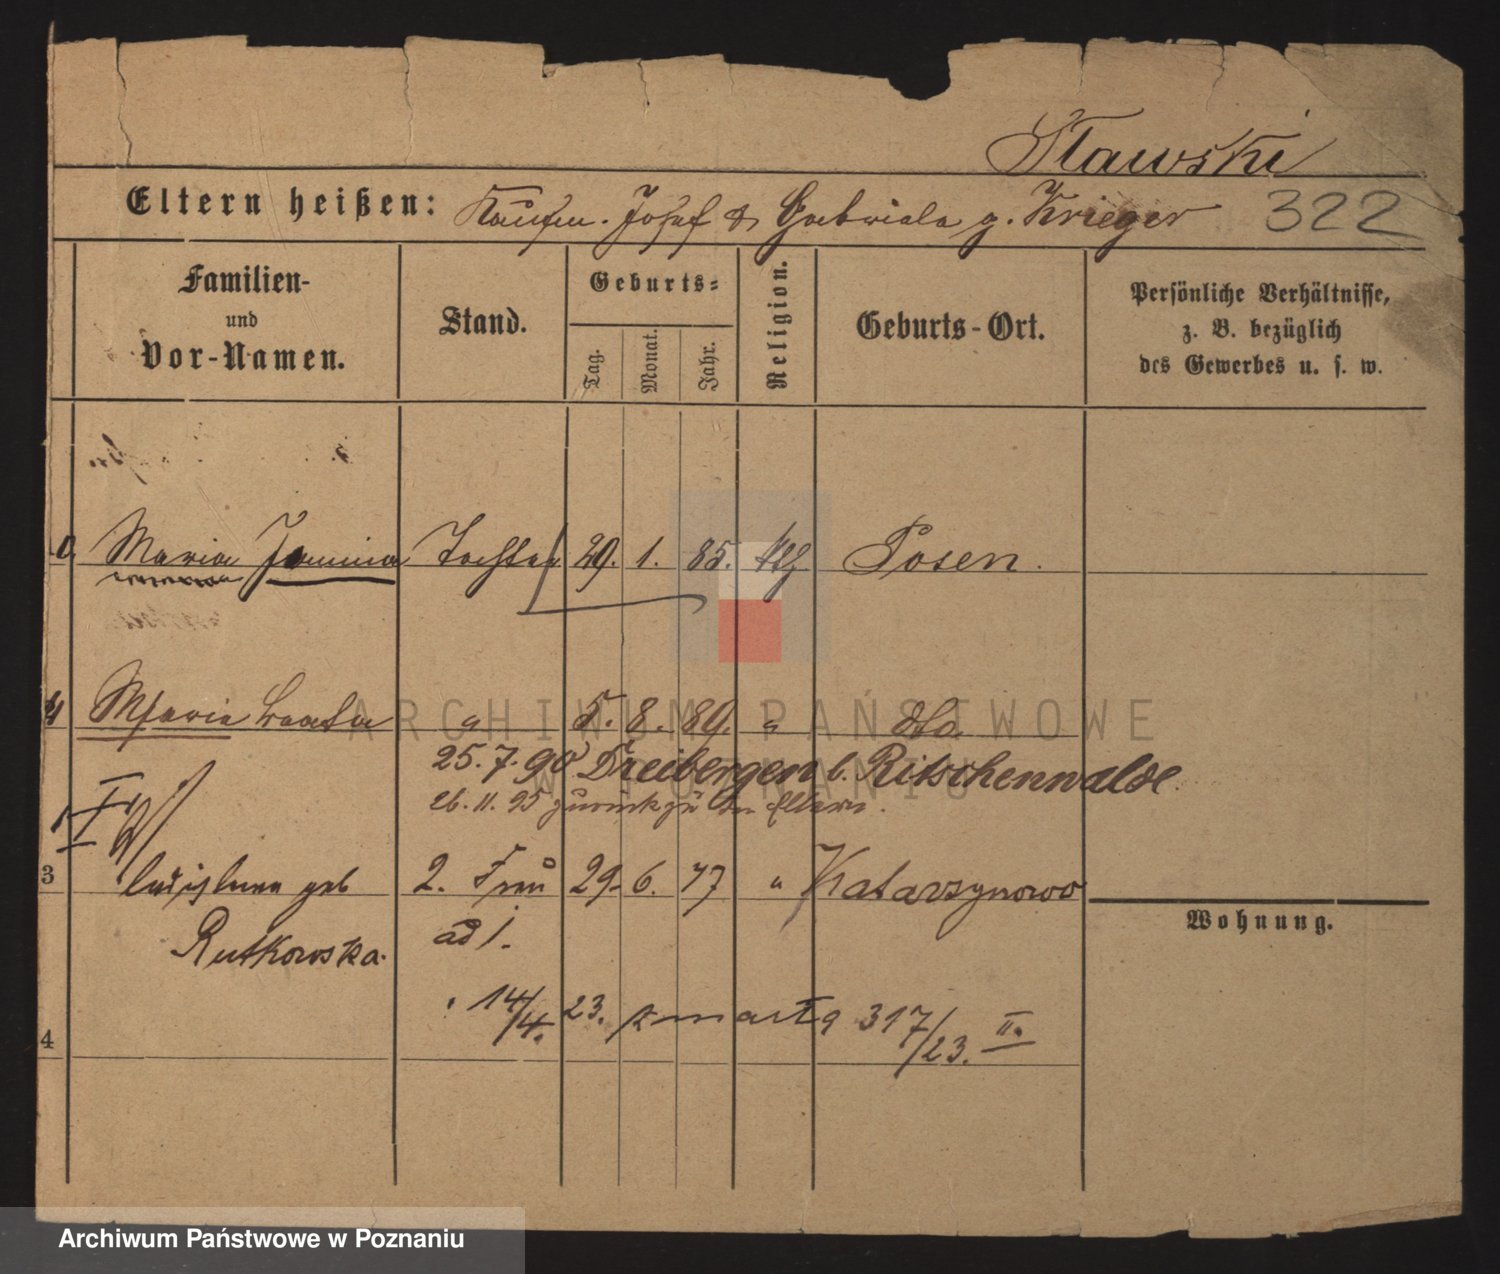 Sławski
Eltern heißen: Kaufm. Josef & Gabriela g. Krieger 322
Familien-
und
Vor-Namen.
Stand.
Geburts-
Tag.
Monat.
Jahr.
Religion.
Geburts-Ort.
Persönliche Verhältnisse,
z. B. bezüglich
des Gewerbes u. s. w.
Maria Janina Tochter 29. 1. 85. Posen.
4 Maria 5. 8. 89. " dto
25.7.90 Dreibergen b. Ritschenwalde.
26.11.95 zurück zu den Eltern.
3 geb 2. Frau 29. 6. 77 " Katarzynowo
Rutkowska. ad 1.
Wohnung.
14/4. 23. zmarła 317/23. II.
4
ARCHIWUM PAŃSTWOWE
W POZNANIU
Archiwum Państwowe w Poznaniu